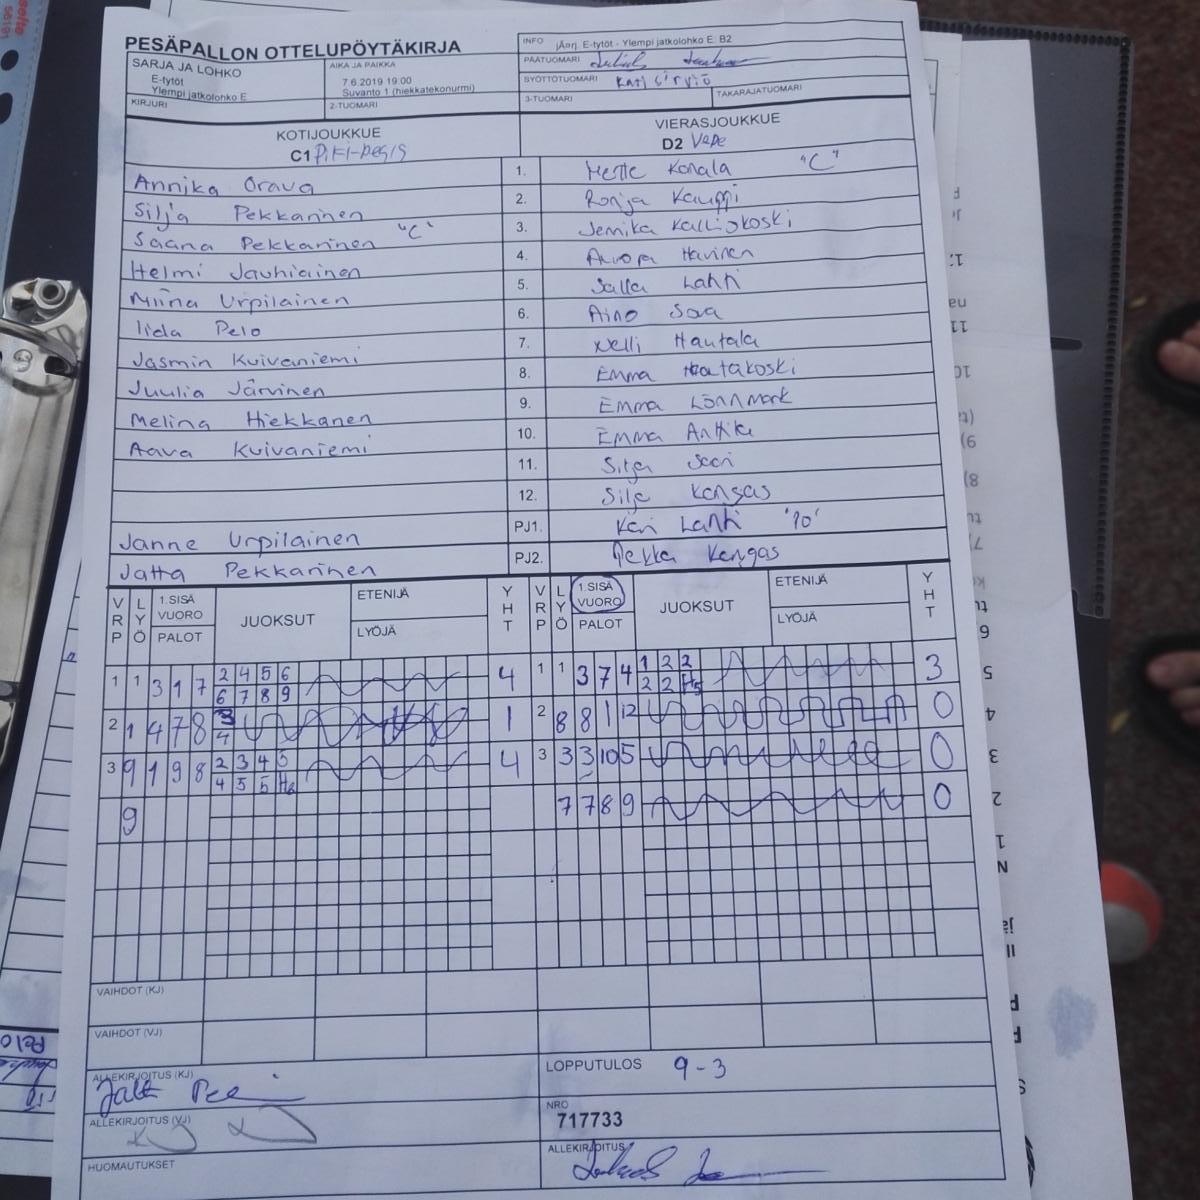 PESÄPALLON OTTELUPÖYTÄKIRJA
INFO jÄorj. E-tytöt - Ylempi jatkolohko E: B2
SARJA JA LOHKO
E-tytöt
Ylempi jatkolohko E
AIKA JA PAIKKA
7.6.2019 19:00
Suvanto 1 (hiekkatekonurmi)
PÄÄTUOMARI
SYÖTTÖTUOMARI Kati Sirviö
KIRJURI 2-TUOMARI 3-TUOMARI TAKARAJATUOMARI
KOTIJOUKKUE VIERASJOUKKUE
C1 Piki-pesis D2 Vepe
Annika Orava 1. Mette Konala "C"
Silja Pekkarinen 2. Ronja Kauppi
Saana Pekkarinen "C" 3. Jemika Kalliokoski
Helmi Jauhiainen 4. Aurora Havinen
Miina Urpilainen 5. Salla Lahti
Iida Pelo 6. Aino Sova
Jasmin Kuivaniemi 7. Nelli Hautala
Juulia Järvinen 8. Emma Hautakoski
Melina Hiekkanen 9. Emma Lönnmark
Aava Kuivaniemi 10. Emma Anttila
11. Silja Saari
12. Silja Kangas
Janne Urpilainen PJ1. Kari Lahti '10'
Jatta Pekkarinen PJ2. Pekka Kangas
VRP LYÖ 1.SISÄ VUORO PALOT JUOKSUT ETENIJÄ LYÖJÄ YHT VRP LYÖ 1.SISÄ VUORO PALOT JUOKSUT ETENIJÄ LYÖJÄ YHT
1 1 3 1 7 2 4 5 6 4 1 1 3 7 4 1 2 2 3
6 7 8 9 2 2 H5
2 1 4 7 8 3 1 2 8 8 1 12 0
4
3 9 1 9 8 2 3 4 5 4 3 3 3 10 5 0
4 5 5 H6
9 7 7 8 9 0
VAIHDOT (KJ)
VAIHDOT (VJ)
ALLEKIRJOITUS (KJ) LOPPUTULOS 9-3
ALLEKIRJOITUS (VJ) NRO
717733
HUOMAUTUKSET ALLEKIRJOITUS